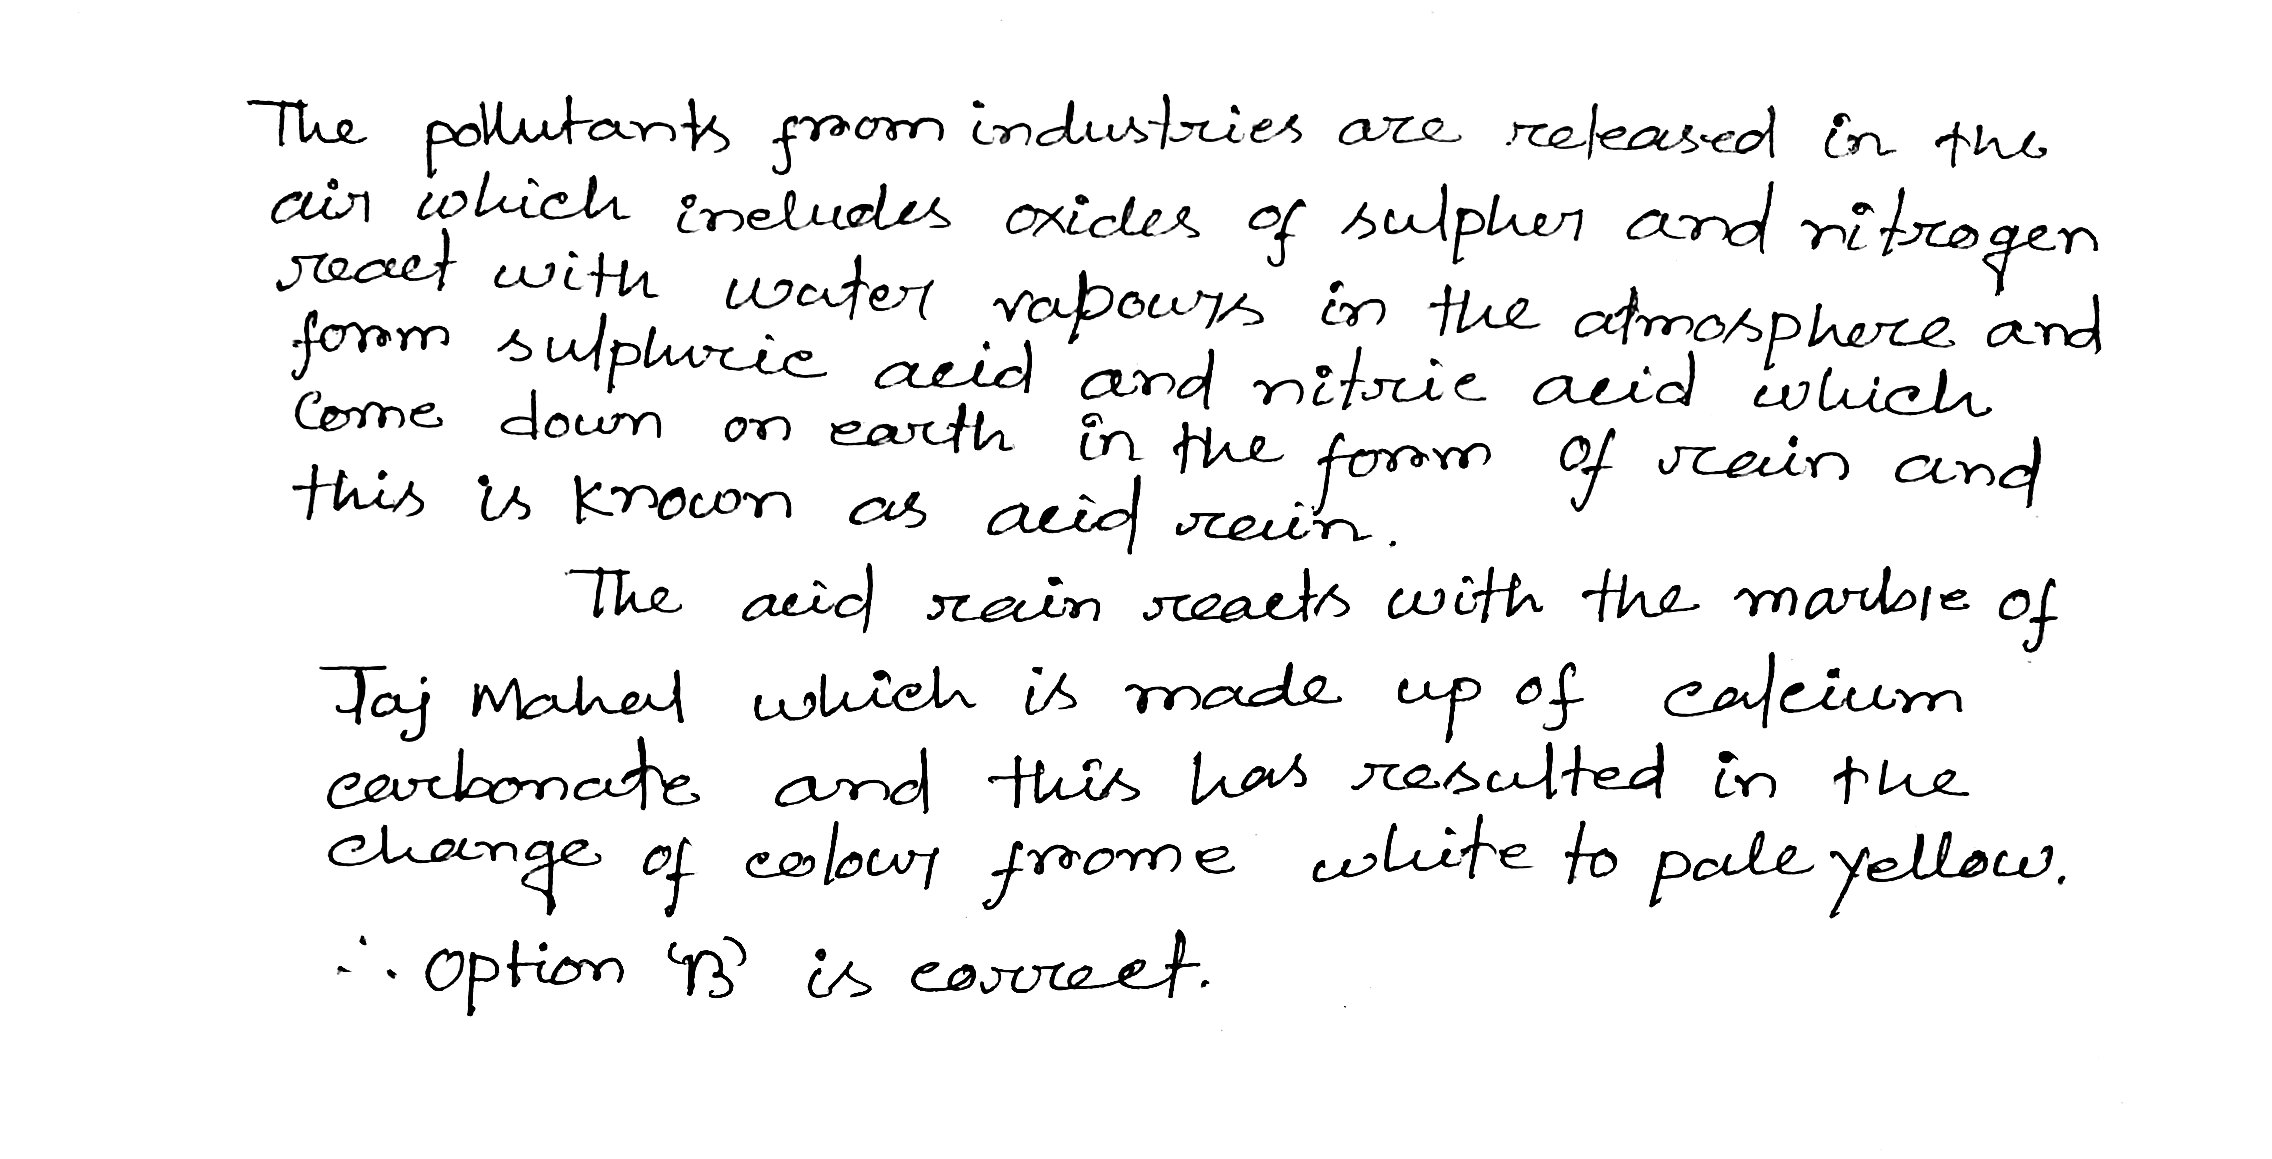 The pollutants from industries are released in the
air which includes oxides of sulpher and nitrogen
react with water vapours in the atmosphere and
form sulphuric acid and nitric acid which
Come down on earth in the form of rain and
this is known as acid rain.
The acid rain reacts with the marble of
Taj Mahal which is made up of calcium
carbonate and this has resulted in the
change of colour frome white to pale yellow.
∴ Option 'B' is correct.